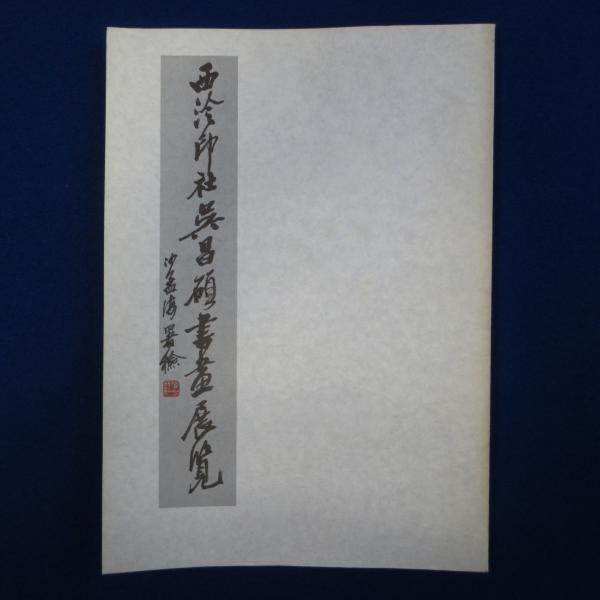 西泠印社吳昌碩書畫展覽
沙孟海署檢